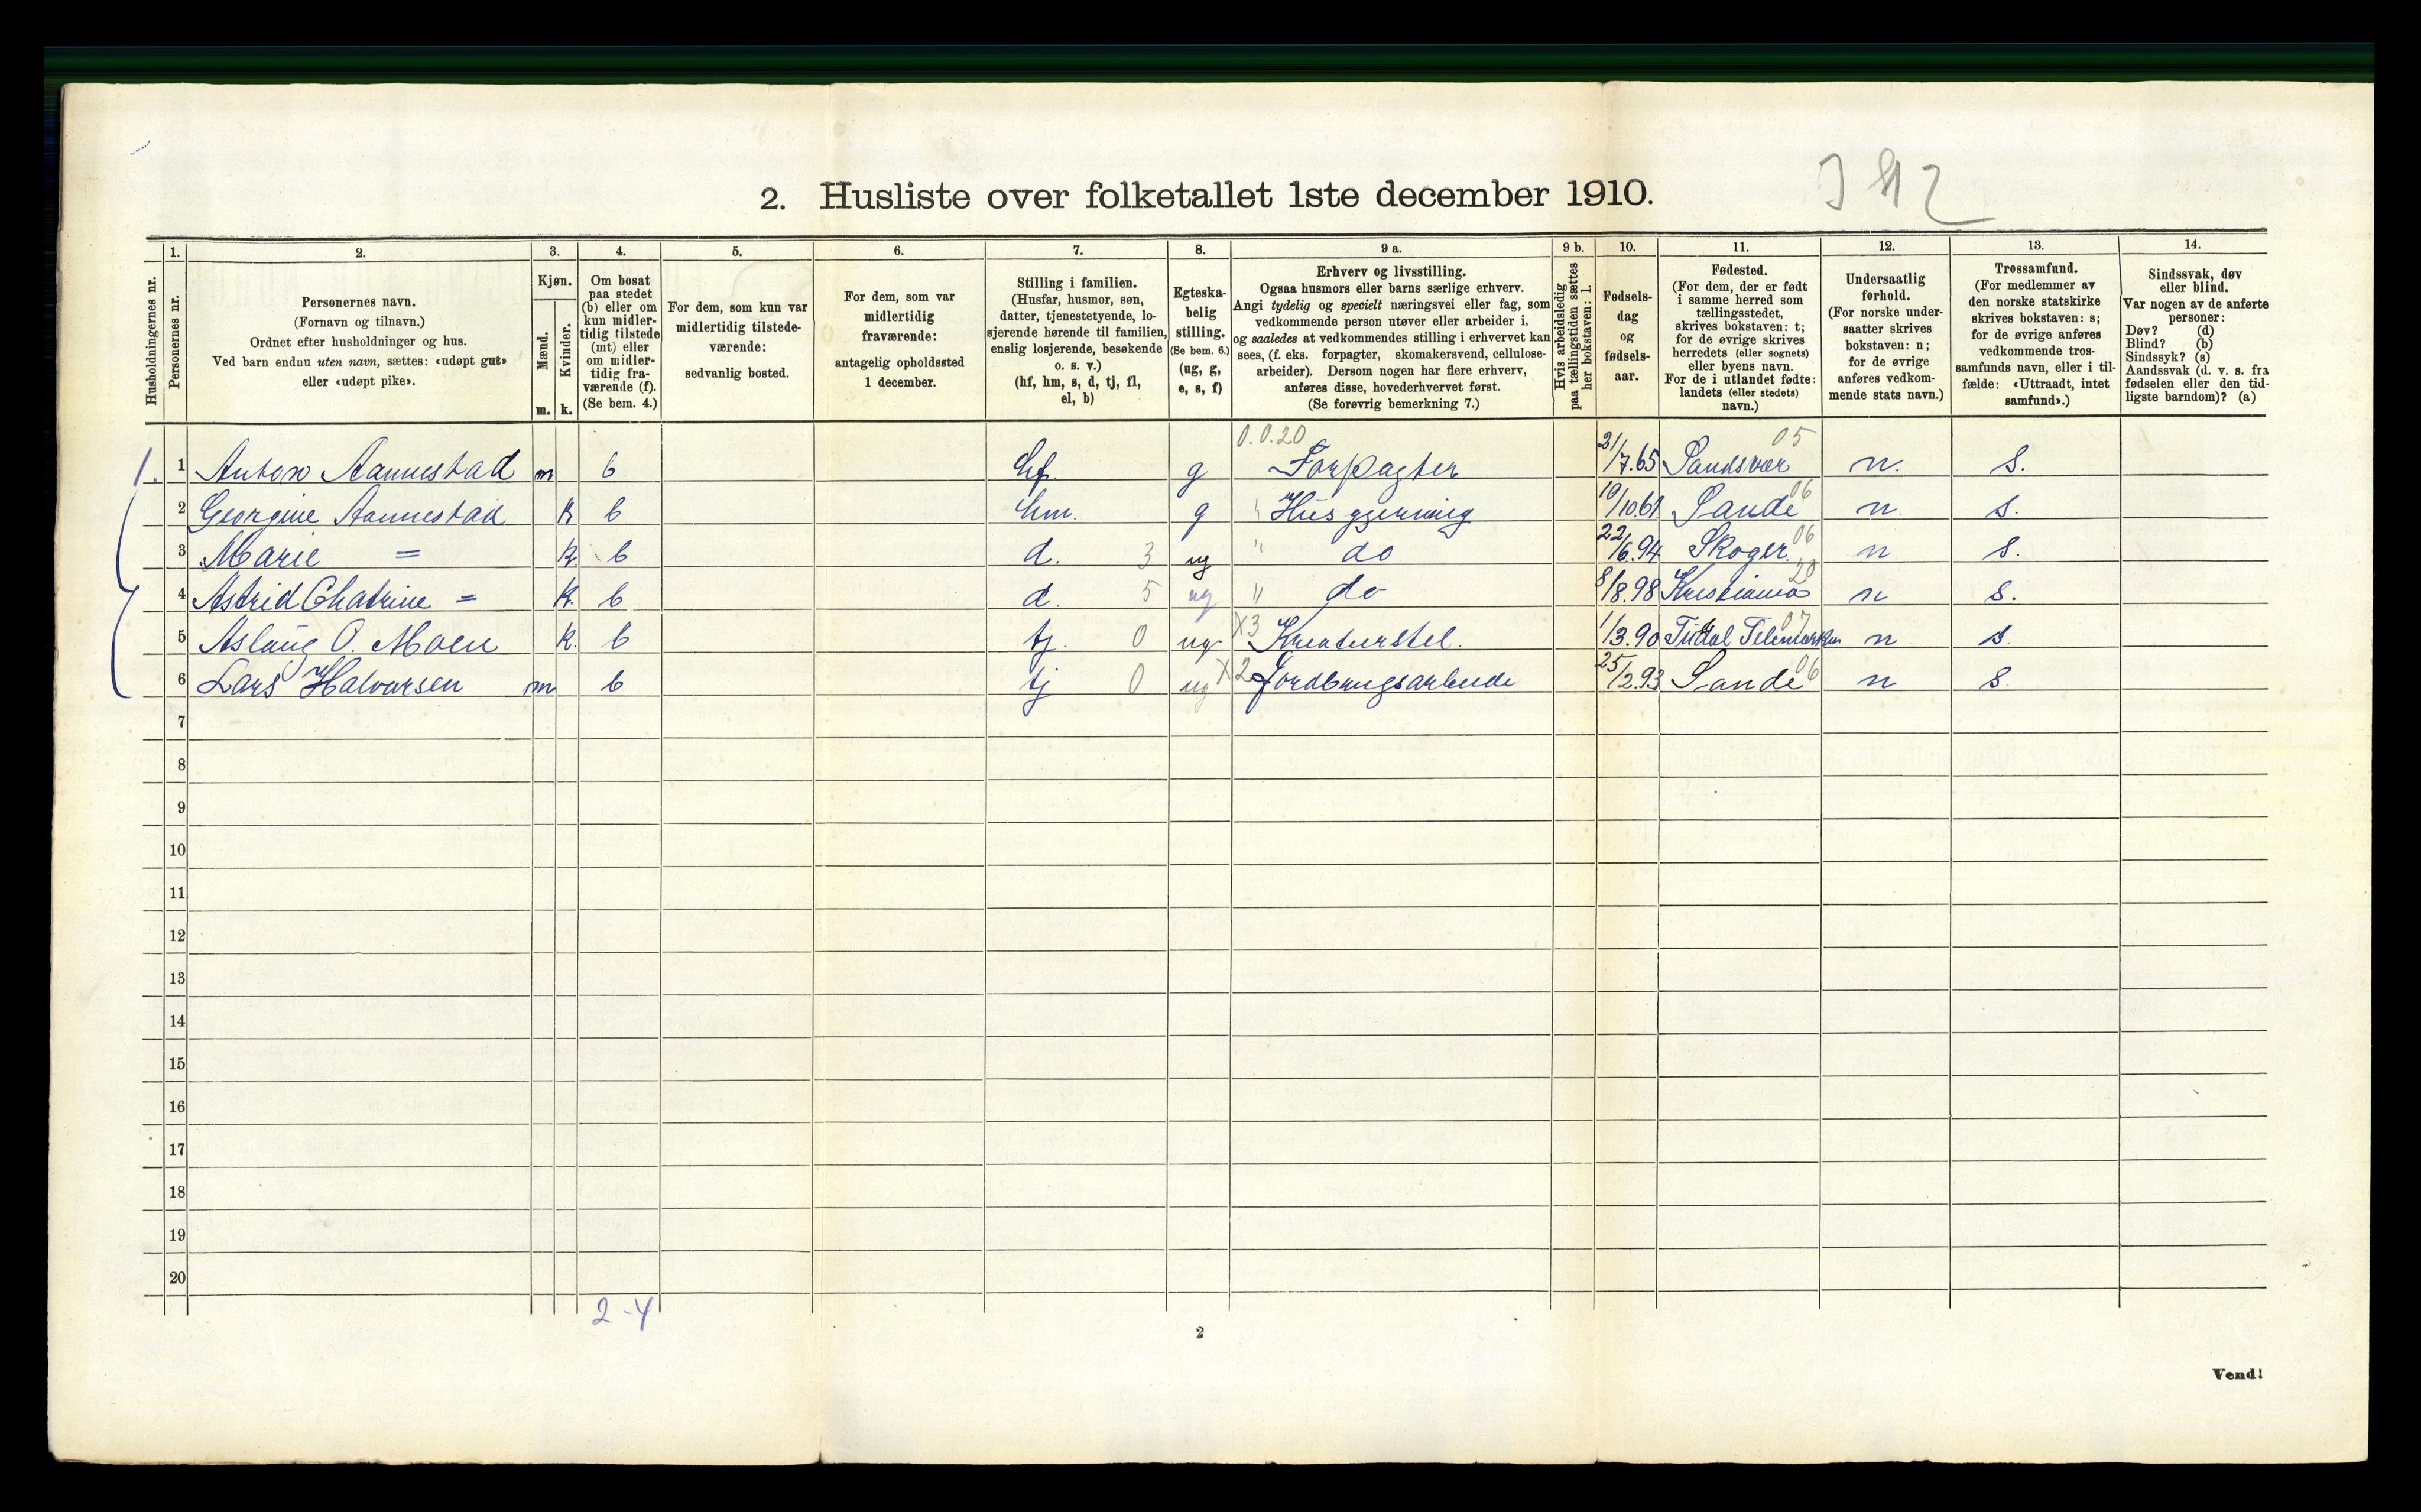 2. Husliste over folketallet 1ste december 1910.
Husholdningernes nr.
1. Personernes nr.
2. Personernes navn. (Fornavn og tilnavn.) Ordnet efter husholdninger og hus. Ved barn endnu uten navn, sættes: «udøpt gut» eller «udøpt pike».
3. Kjøn. Mænd. m. Kvinder. k.
4. Om bosat paa stedet (b) eller om kun midlertidig tilstede (mt) eller om midlertidig fraværende (f). (Se bem. 4.)
5. For dem, som kun var midlertidig tilstedeværende: sedvanlig bosted.
6. For dem, som var midlertidig fraværende: antagelig opholdssted 1 december.
7. Stilling i familien. (Husfar, husmor, søn, datter, tjenestetyende, losjerende hørende til familien, enslig losjerende, besøkende o. s. v.) (hf, hm, s, d, tj, fl, el, b)
8. Egteskabelig stilling. (Se bem. 6.) (ug, g, e, s, f)
9 a. Erhverv og livsstilling. Ogsaa husmors eller barns særlige erhverv. Angi tydelig og specielt næringsvei eller fag, som vedkommende person utøver eller arbeider i, og saaledes at vedkommendes stilling i erhvervet kan sees, (f. eks. forpagter, skomakersvend, cellulosearbeider). Dersom nogen har flere erhverv, anføres disse, hovederhvervet først. (Se forøvrig bemerkning 7.)
9 b. Hvis arbeidsledig paa tællingstiden sættes her bokstaven: l.
10. Fødselsdag og fødselsaar.
11. Fødested. (For dem, der er født i samme herred som tællingsstedet, skrives bokstaven: t; for de øvrige skrives herredets (eller sognets) eller byens navn. For de i utlandet fødte: landets (eller stedets) navn.)
12. Undersaatlig forhold. (For norske undersaatter skrives bokstaven: n; for de øvrige anføres vedkommende stats navn.)
13. Trossamfund. (For medlemmer av den norske statskirke skrives bokstaven: s; for de øvrige anføres vedkommende trossamfunds navn, eller i tilfælde: «Uttraadt, intet samfund».)
14. Sindssvak, døv eller blind. Var nogen av de anførte personer: Døv? (d) Blind? (b) Sindssyk? (s) Aandssvak (d. v. s. fra fødselen eller den tidligste barndom)? (a)
0.0.20 05
1. 1 Anton Aannestad m b hf. g Forpagter 21/7.65 Sandsvær n. s.
2 Georgine Aannestad k b hm. g " Husgjerning 19/10.61 Sande 06 n s.
3 Marie = k b d. 3 ug " do 22/6.94 Skoger 06 n s.
4 Astrid Chatrine = k. b d. 5 ug " do 8/8.98 Kristiania 20 n s.
5 Aslaug O. Moen k. b tj. 0 ug X3 Kreaturstel. 1/3.90 Tudal Telemarken 07 n s.
6 Lars Halvorsen m b tj 0 ug X2 Jordbrugsarbeide 25/2.93 Sande 06 n s.
7
8
9
10
11
12
13
14
15
16
17
18
19
20
2-4
2
Vend!